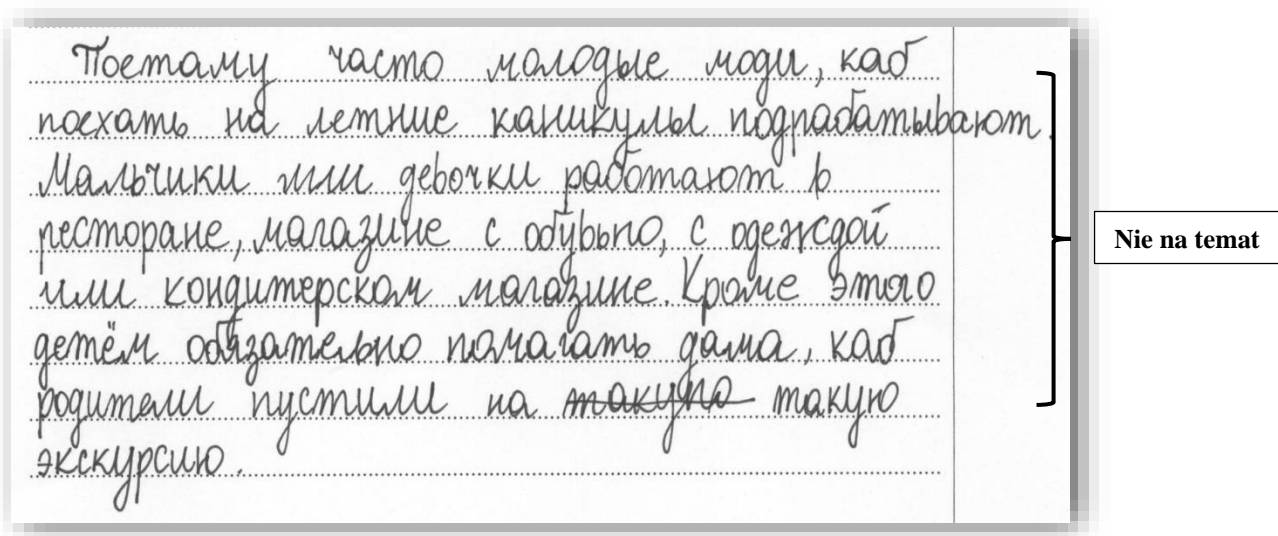 Поетаму часто молодые люди, каб
поехать на летние каникулы подрабатывают.
Мальчики или девочки работают в
ресторане, магазине с обувью, с одеждой
Nie na temat
или кондитерском магазине. Кроме этого
детём обязательно помагать дама, каб
родители пустили на такую такую
экскурсию.